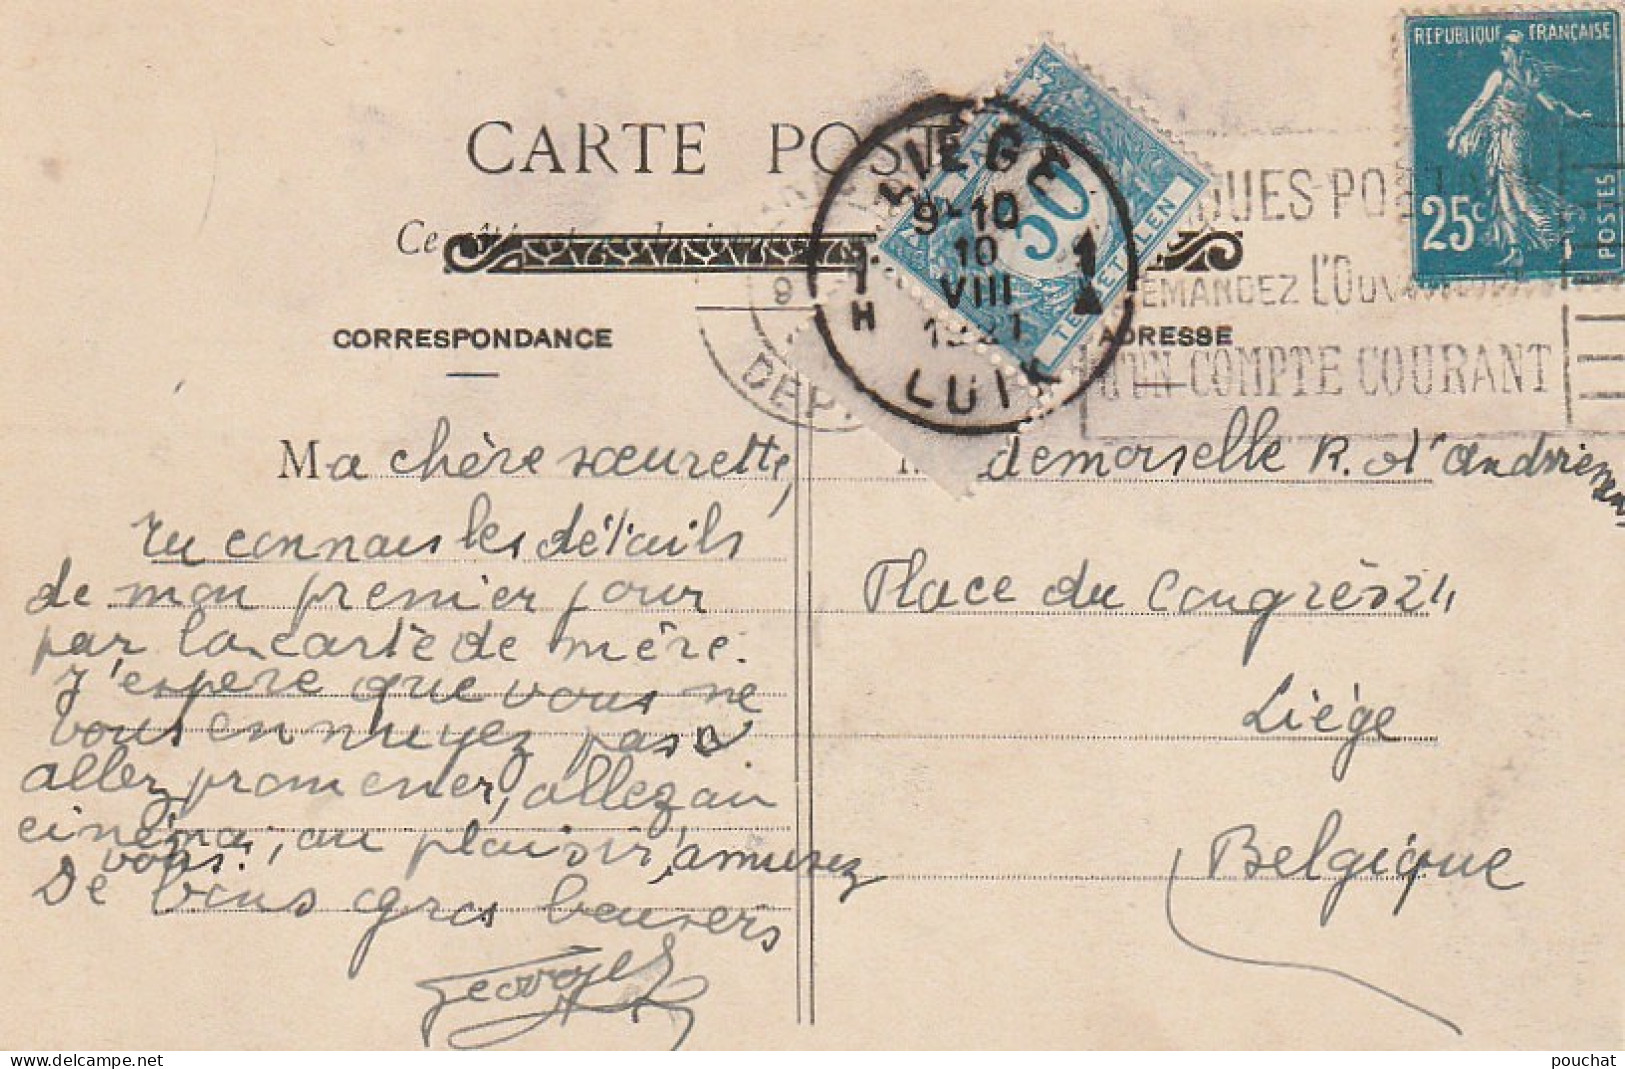 CARTE POST
Ce
CORRESPONDANCE
ADRESSE
REPUBLIQUE FRANÇAISE
25c
POSTES
50
TE BETALEN
LIÈGE
9-10
10
VIII
1921
1 H
1
LUIK
DEP
DEMANDEZ L'OUV
D'UN COMPTE COURANT
Ma chère sœurette,
Tu connais les détails
de mon premier jour
par la carte de mère.
J'espère que vous ne
vous ennuyez pas
allez promener, allez au
cinéma, au plaisir, amusez
vous.
De bons gros baisers
Georges
Mademoiselle R. d'Andrienssen
Place du Congrès 24
Liége
Belgique
pouchat
www.delcampe.net